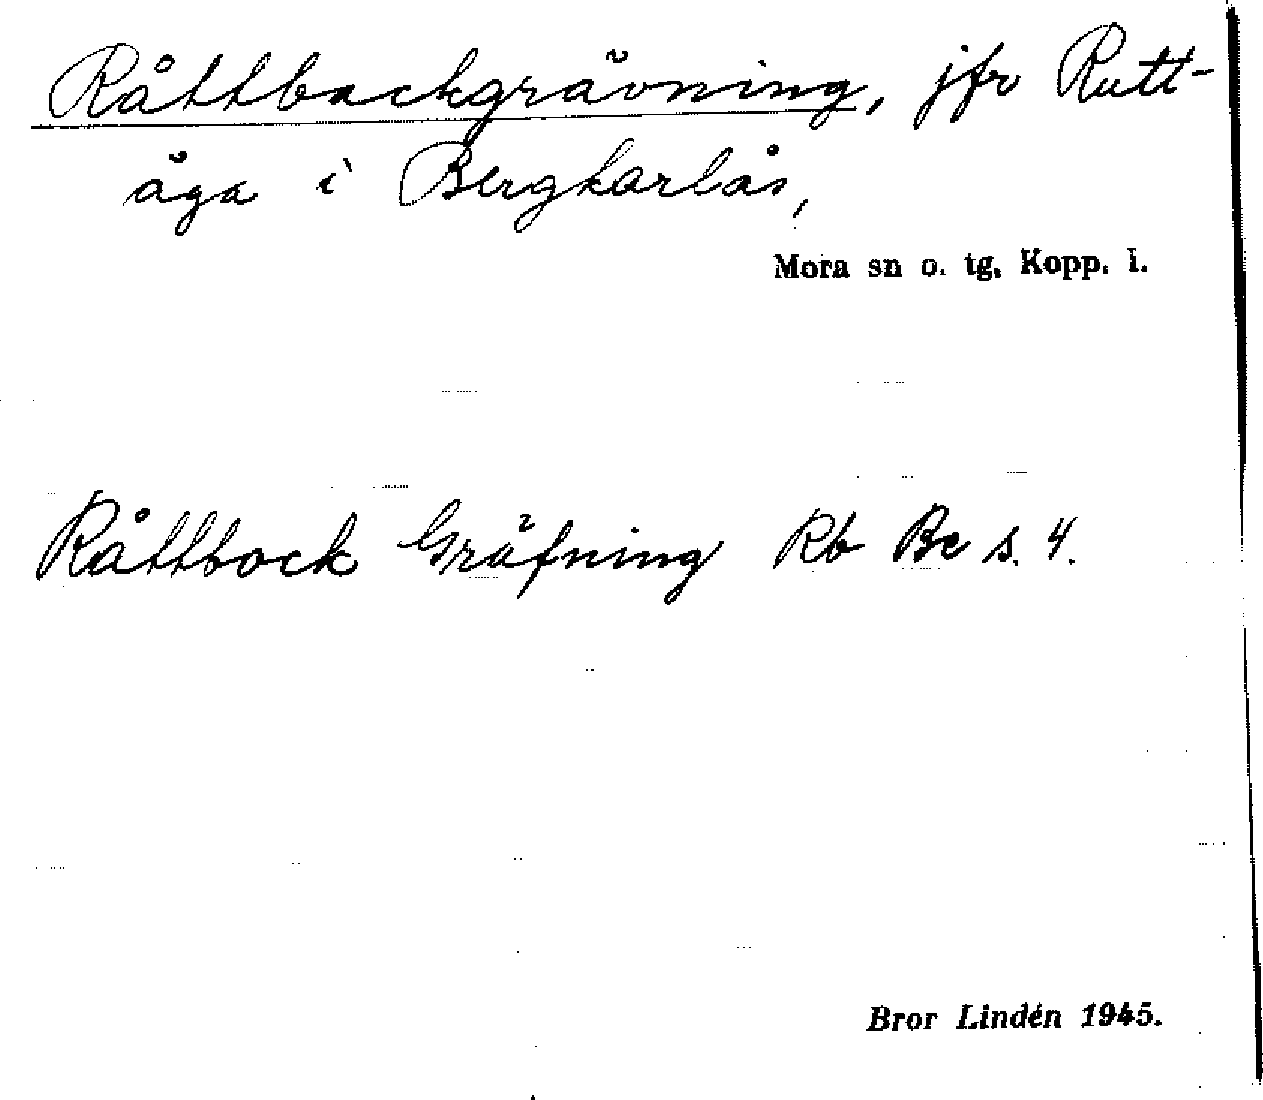 Råttbackgrävning, jfr Rutt-
åga i Bergkarlås,
Mora sn o. tg. Kopp. l.
Råttbock Gräfning Rb Bc s. 4.
Bror Lindén 1945.